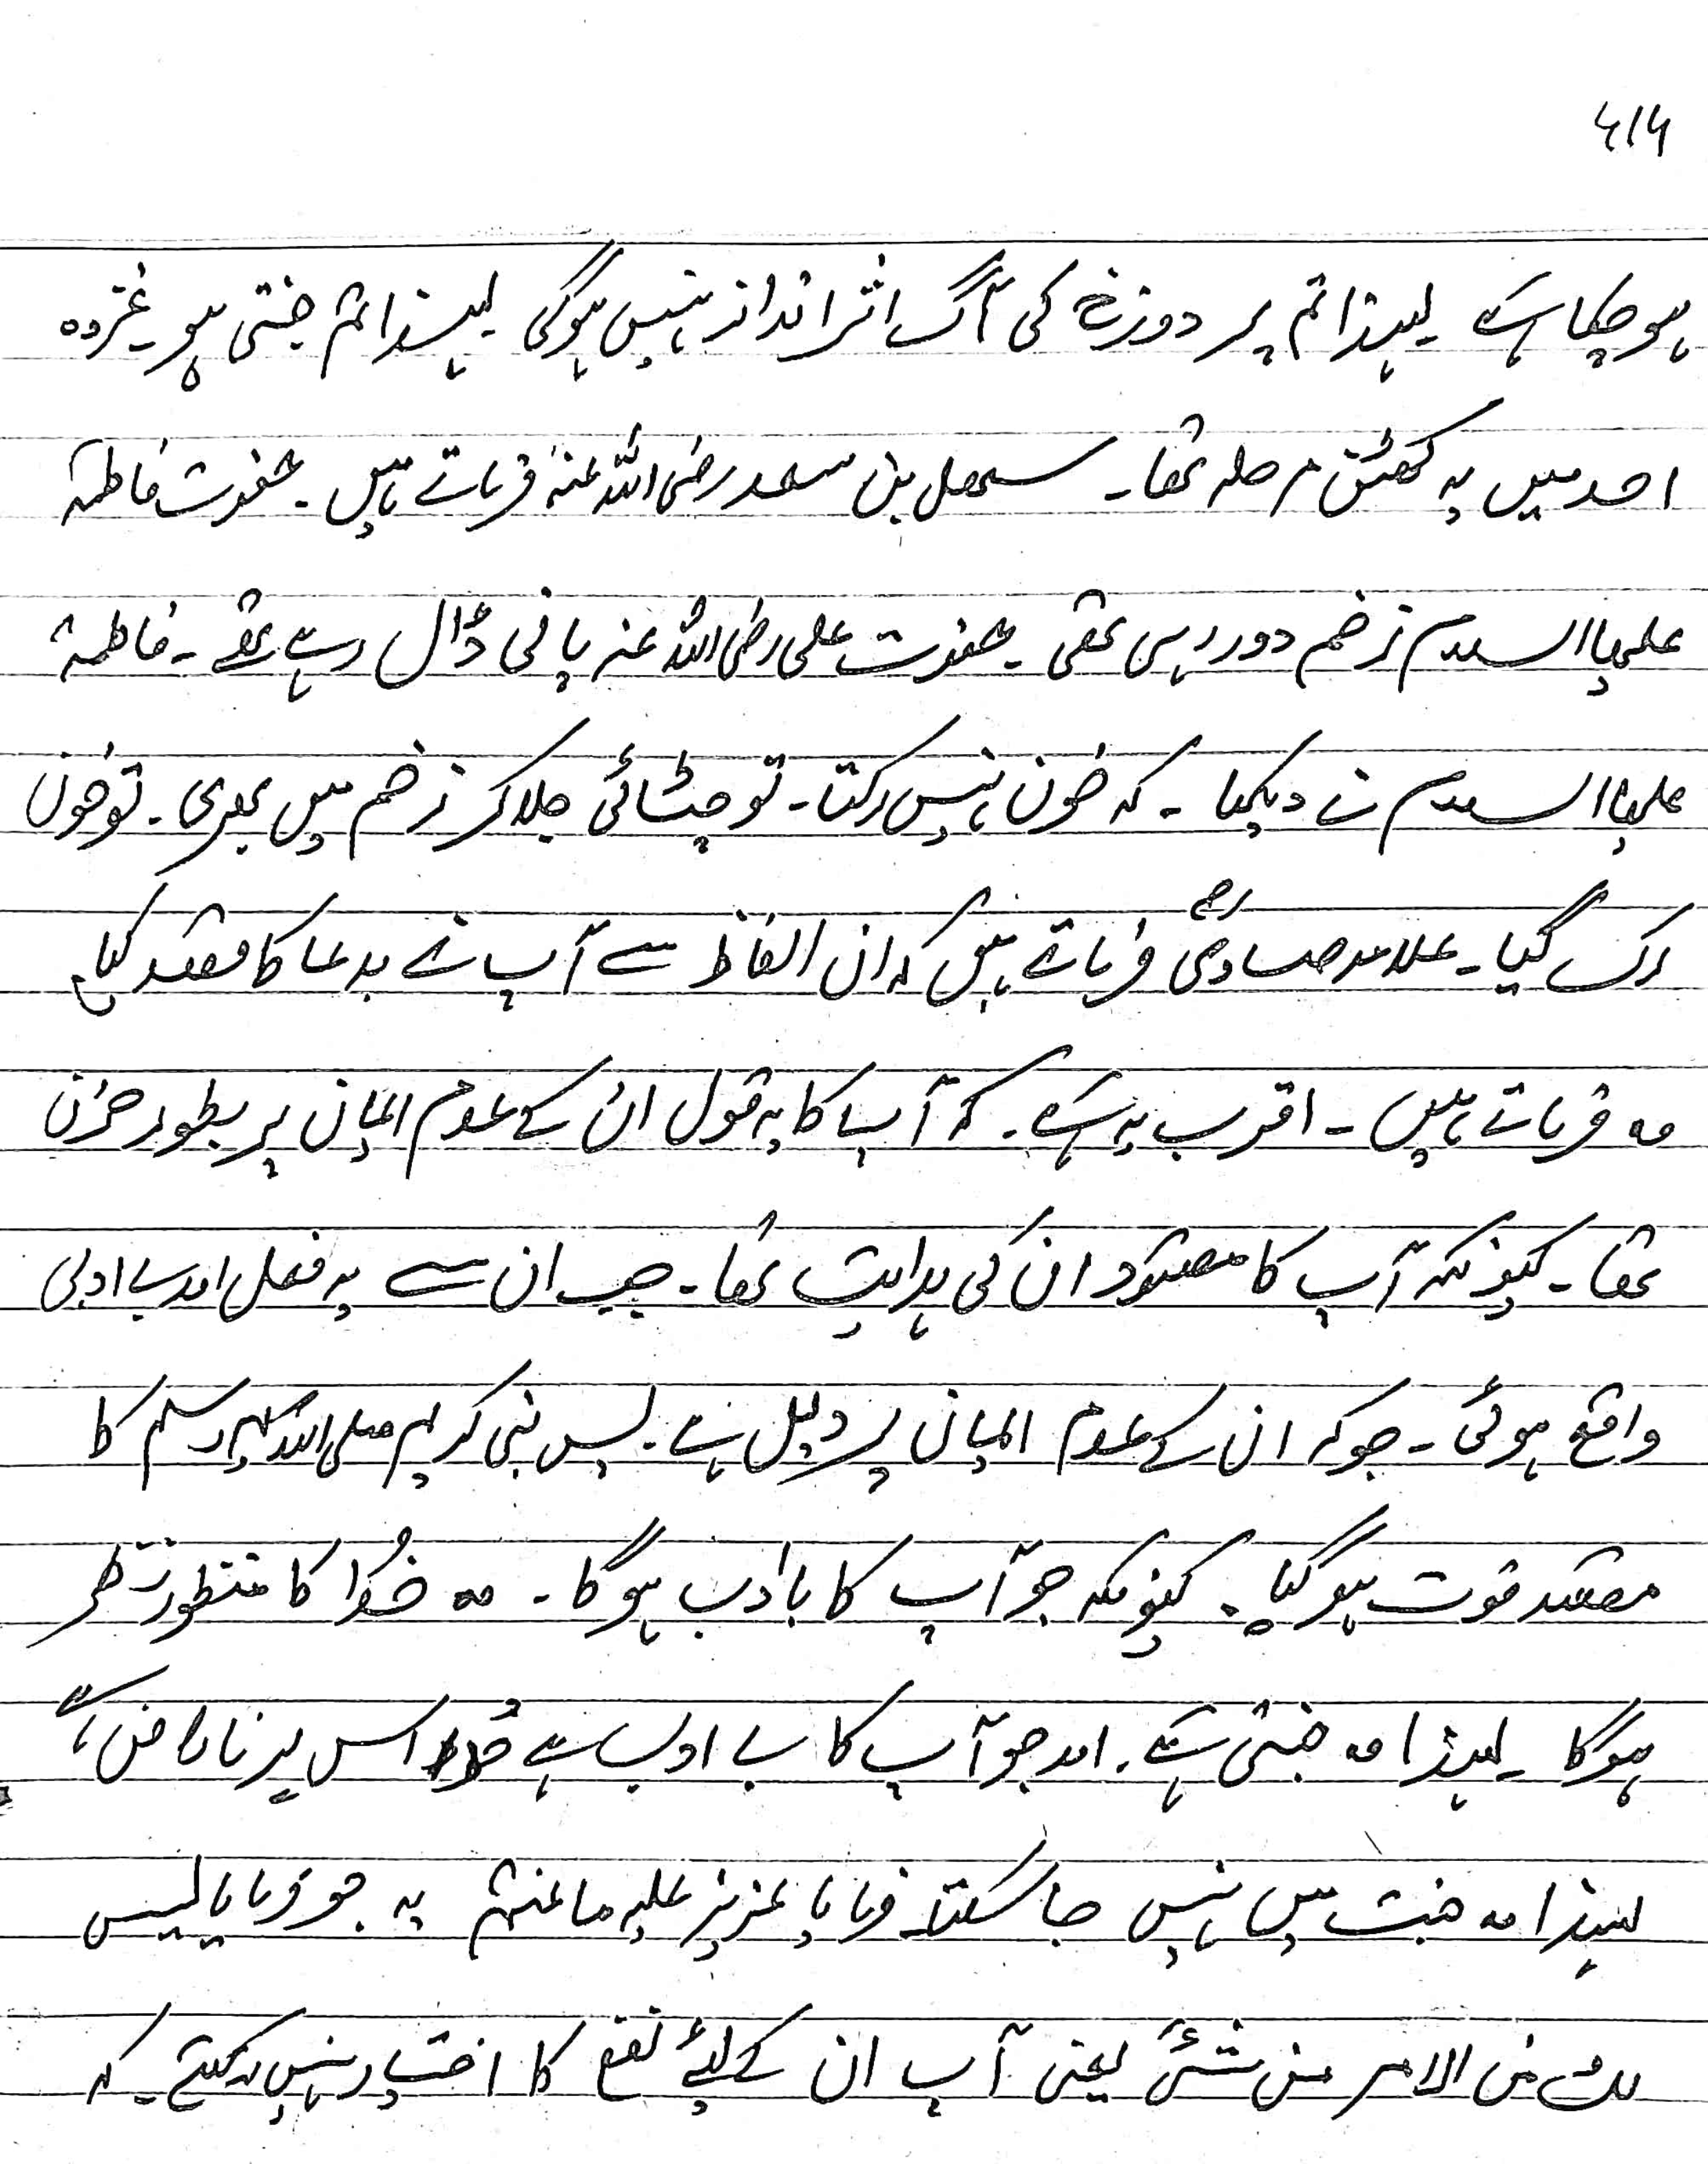 ۶۱۶
ہو چکا ہے ۔ لہذا تم پر دوزخ کی آگ اثر انداز نہیں ہوگی لہذا تم جنتی ہو ۔ غزوہ
احد میں یہ کٹھن مرحلہ تھا ۔ سھل بن سعد رضی اللہ عنہ فرماتے ہیں ۔ حضرت فاطمہ
علیہا السلام زخم دھو رہی تھی ۔ حضرت علی رضی اللہ عنہ پانی ڈال رہے تھے ۔ فاطمہ
علیھا السلام نے دیکھا ۔ کہ خون نہیں رکتا ۔ تو چٹائی جلا کر زخم میں بھری ۔ تو خون
رک گیا ۔ علامہ صاویؒ فرماتے ہیں کہ ان الفاظ سے آپ نے بدعا کا قصد کیا
وہ فرماتے ہیں ۔ اقرب یہ ہے ۔ کہ آپ کا یہ قول ان کے عدم ایمان پر بطور حزن
تھا ۔ کیونکہ آپ کا مقصود ان کی ہدایت تھا ۔ جب ان سے یہ فعل اور بے ادبی
واقع ہوئی ۔ جو کہ ان کے عدم ایمان پر دلیل ہے ۔ پس نبی کریم صلی اللہ علیہ وسلم کا
مقصد فوت ہو گیا ۔ کیونکہ جو آپ کا باادب ہوگا ۔ وہ خدا کا منظور نظر
ہوگا ۔ لہذا وہ جنتی ہے ۔ اور جو آپ کا بے ادب ہے خدا اس پر ناراض ہے
لہذا وہ جنت میں نہیں جا سکتا ۔ فرمایا عزیز علیہ ما عنتم یہ جو فرمایا لیس
لک من الامر من شئیً یعنی آپ ان کے لئے نفع کا اختیار نہیں رکھتے ۔ کہ